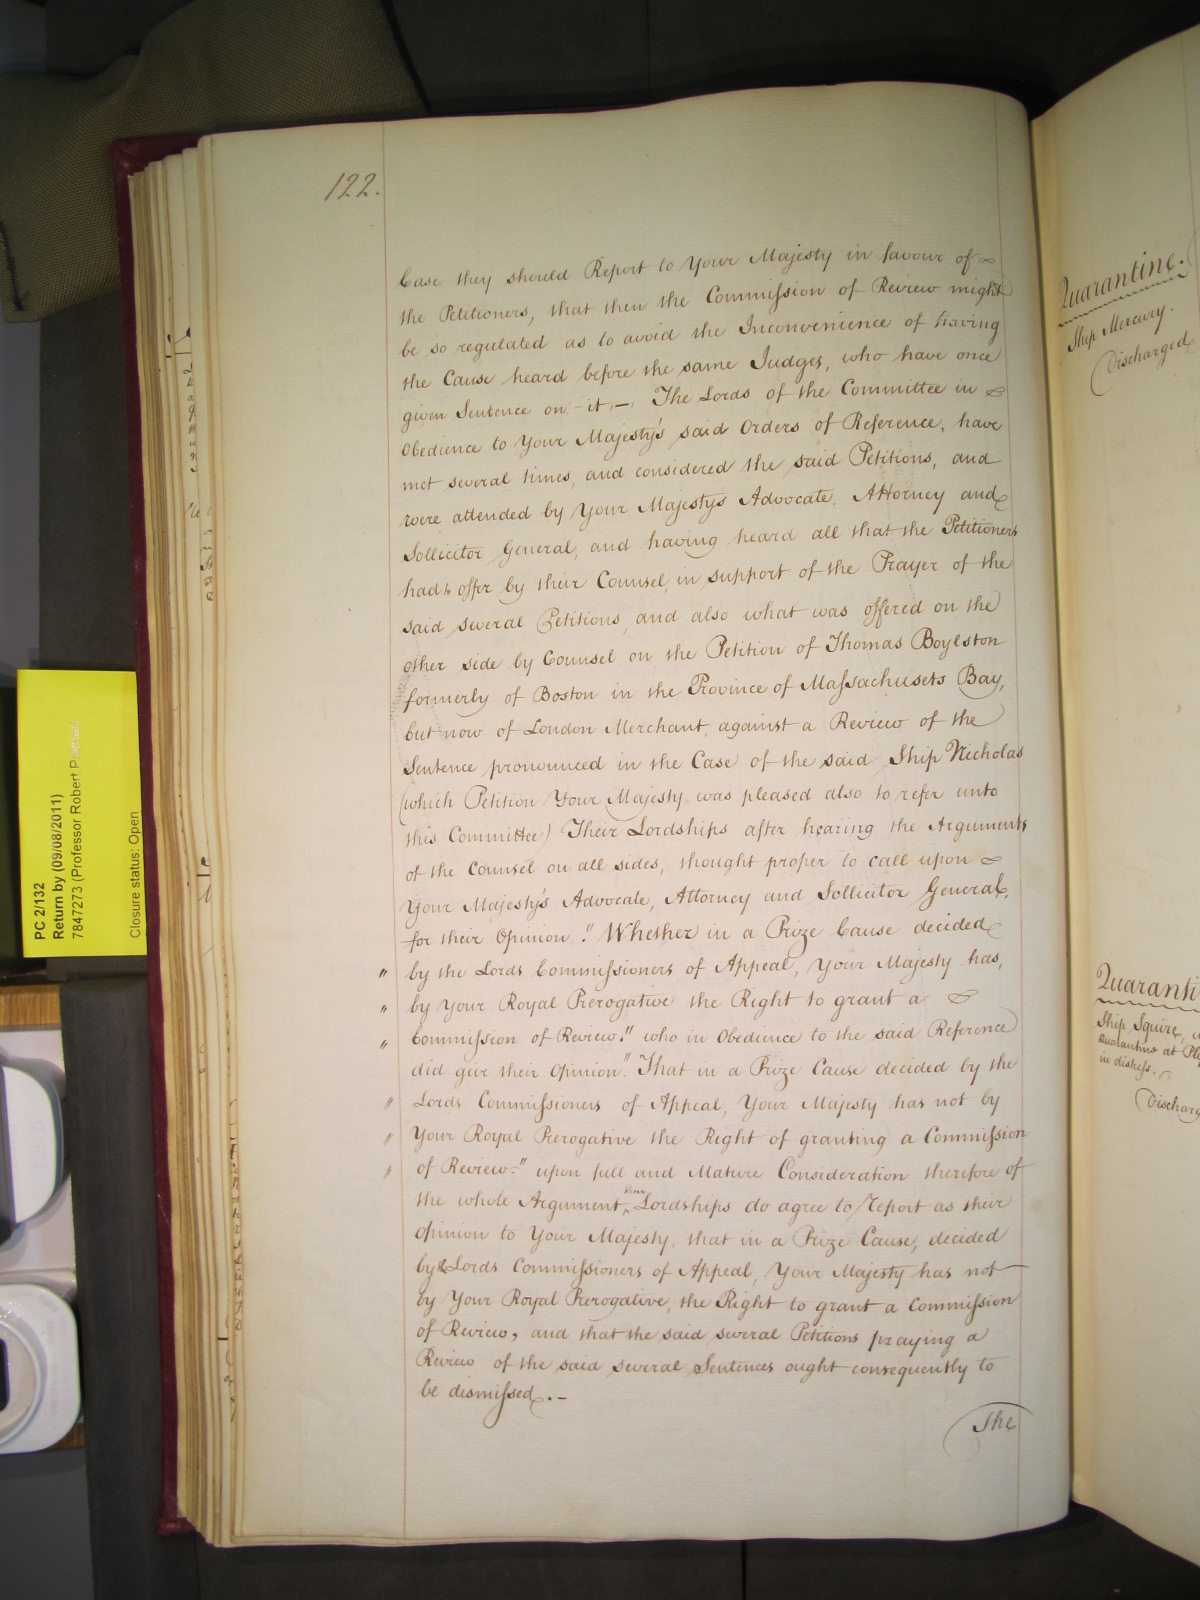 122.
Case they should Report to Your Majesty in favour of
the Petitioners, that then the Commission of Review might
be so regulated as to avoid the Inconvenience of having
the Cause heard before the same Judges, who have once
given Sentence on it,—. The Lords of the Committee in
Obedience to Your Majesty's said Orders of Reference, have
met several times, and considered the said Petitions, and
were attended by Your Majestys Advocate, Attorney and
Sollicitor General, and having heard all that the Petitioners
had to offer by their Counsel, in support of the Prayer of the
said several Petitions, and also what was offered on the
other side by Counsel on the Petition of Thomas Boylston
formerly of Boston in the Province of Massachusets Bay,
but now of London Merchant, against a Review of the
Sentence pronounced in the Case of the said Ship Nicholas
(which Petition Your Majesty was pleased also to refer unto
this Committee) Their Lordships after hearing the Arguments
of the Counsel on all sides, thought proper to call upon
Your Majesty's Advocate, Attorney and Sollicitor General,
for their Opinion. "Whether in a Prize Cause decided
" by the Lords Commissioners of Appeal, Your Majesty has,
" by Your Royal Prerogative the Right to grant a
" Commission of Review." who in Obedience to the said Reference
did give their Opinion. "That in a Prize Cause decided by the
" Lords Commissioners of Appeal, Your Majesty has not by
" Your Royal Prerogative the Right of granting a Commission
" of Review." upon full and Mature Consideration therefore of
the whole Argument, their Lordships do agree to Report as their
opinion to Your Majesty, that in a Prize Cause, decided
by the Lords Commissioners of Appeal, Your Majesty has not
by Your Royal Prerogative, the Right to grant a Commission
of Review, and that the said several Petitions praying a
Review of the said several Sentences ought consequently to
be dismissed.—
The
Quarantine.
Ship Mercury.
Discharged
Quaranti
Ship Squire,
Quarantine at Ply
in distress.
Discharg
PC 2/132
Return by (09/08/2011)
7847273 (Professor Robert P
Closure status: Open